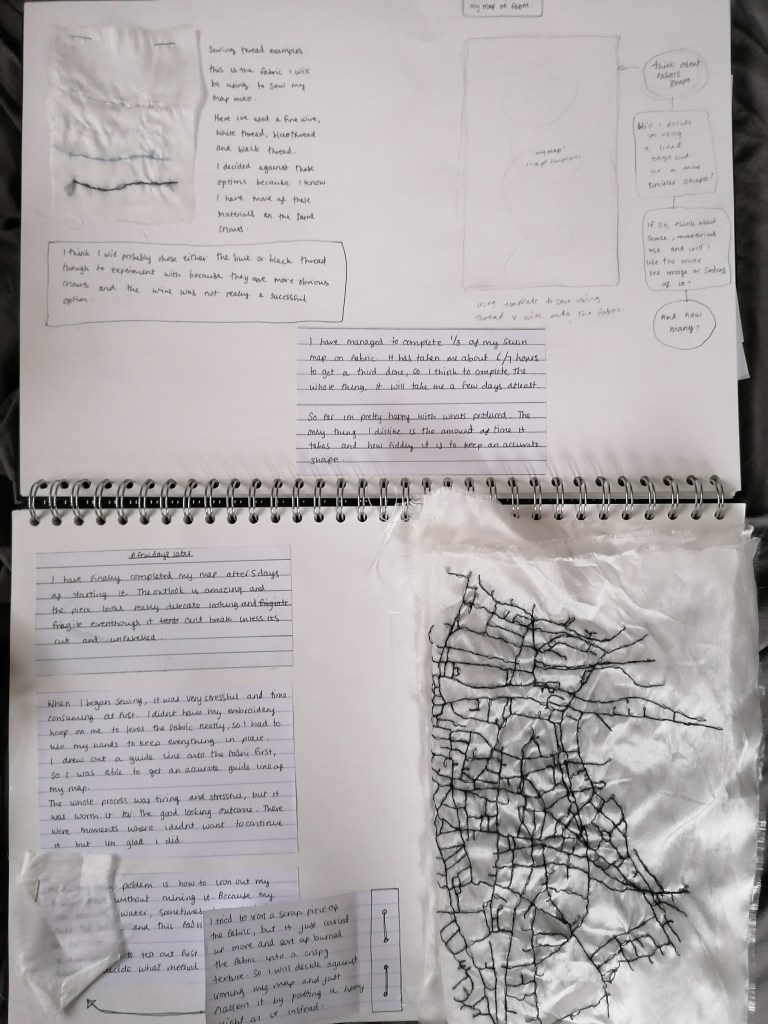 my map on fabric
Sewing thread examples.
this is the fabric I will
be using to sew my
map onto.
Here ive used a fine wire,
white thread, blue thread
and black thread.
I decided against these
options because I know
I have more of these
materials in the same
I think I will probably chose either the blue or black thread
though to experiment with because they are more obvious
colours and the wire was not really a sucessful
option.
think about
fabric
shape
Will I decide
on using
a lined
edge cut
or a more
circular shape?
If so, think about
scale, material
use and will I
use the whole
image or sections
of it?
And how
many?
'my map'
using template to sew using
thread x wire onto the fabric.
I have managed to complete 1/3 of my sewn
map on fabric. It has taken me about 6/7 hours
to get a third done, so I think to complete the
whole thing, it will take me a few days atleast.
So far im pretty happy with whats produced. The
only thing I dislike is the amount of time it
takes and how fiddly it is to keep an accurate
shape.
A few days later
I have finally completed my map after 5 days
of starting it. The outlook is amazing and
the piece looks really delicate looking and
fragile eventhough it cant break unless its
cut and unravelled.
When I began sewing, it was very stressful and time
consuming at first. I didnt have my embroidery
hoop on me to level the fabric neatly, so I had to
use my hands to keep everything in place.
I drew out a guide line onto the fabric first,
so I was able to get an accurate guide line of
my map.
The whole process was tiring and stressful, but it
was worth it for the good looking outcome. There
were moments where i didnt want to continue
it but im glad I did.
problem is how to iron out my
without ruining it. Because my
water, sometimes
and this fabric
to test out first
decide what method
I tried to iron a scrap piece of
the fabric, but it just curled
up more and sort of burned
the fabric into a crispy
texture. So I will decide against
ironing my map and just
flatten it by putting a heavy
weight on it instead.